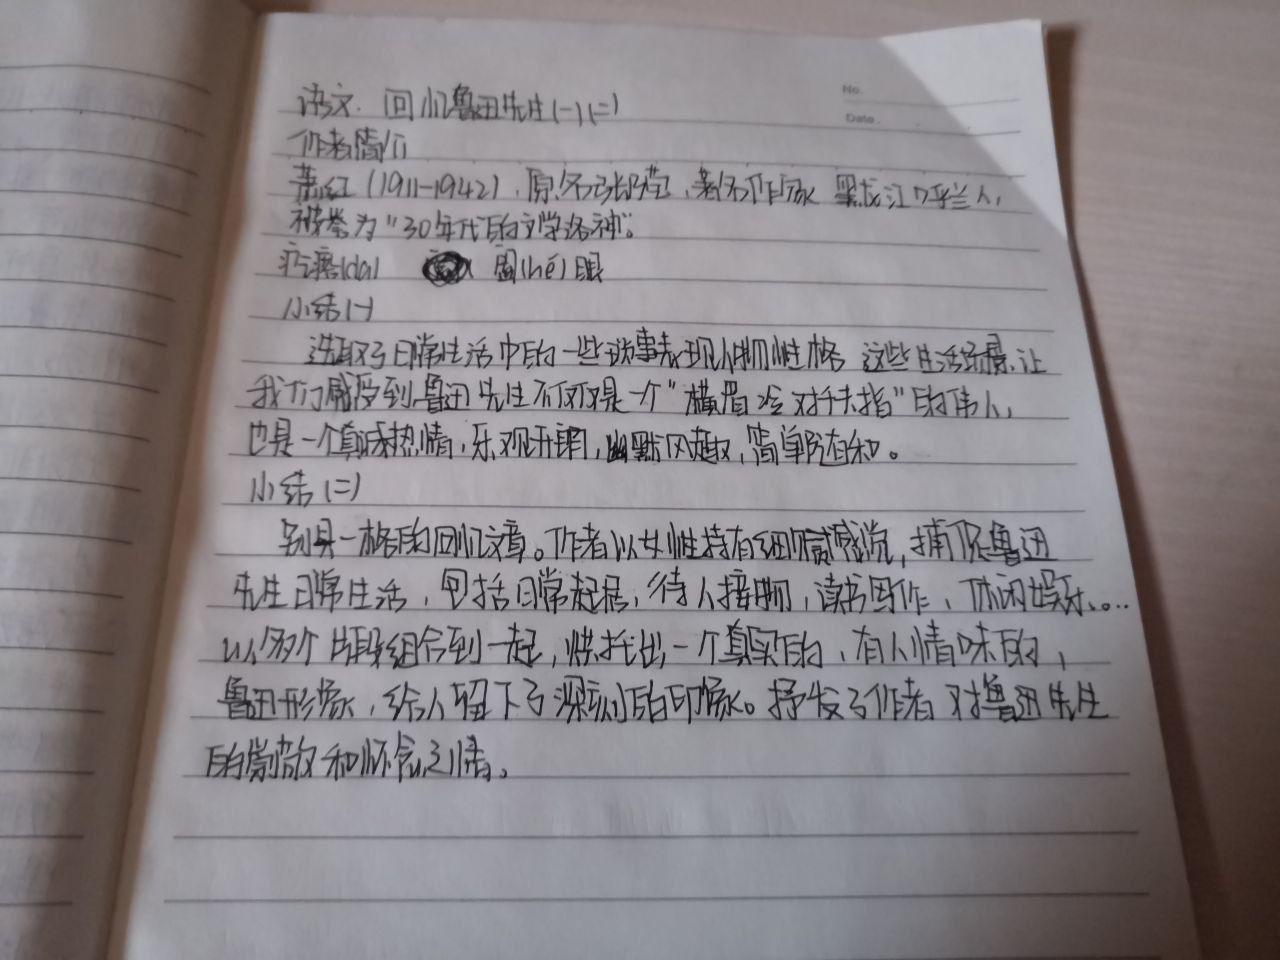 No.
Date.
语文. 回忆鲁迅先生(一)(二)
作者简介
萧红(1911-1942), 原名张乃莹, 著名作家 黑龙江呼兰人,
被誉为"30年代的文学洛神"。
疙瘩(da) 阖(hé)眼
小结(一)
选取了日常生活中的一些琐事表现人物性格 这些生活场景,让
我们感受到鲁迅先生不仅仅是一个"横眉冷对千夫指"的伟人,
也是一个真诚热情,乐观开朗,幽默风趣,简单随和。
小结(二)
别具一格的回忆文章。作者以女性特有细腻感觉,捕捉鲁迅
先生日常生活,包括日常起居,待人接物,读书写作,休闲娱乐……
以多个片段组合到一起,烘托出一个真实的,有人情味的,
鲁迅形象,给人留下了深刻的印象。抒发了作者对鲁迅先生
的崇敬和怀念之情。